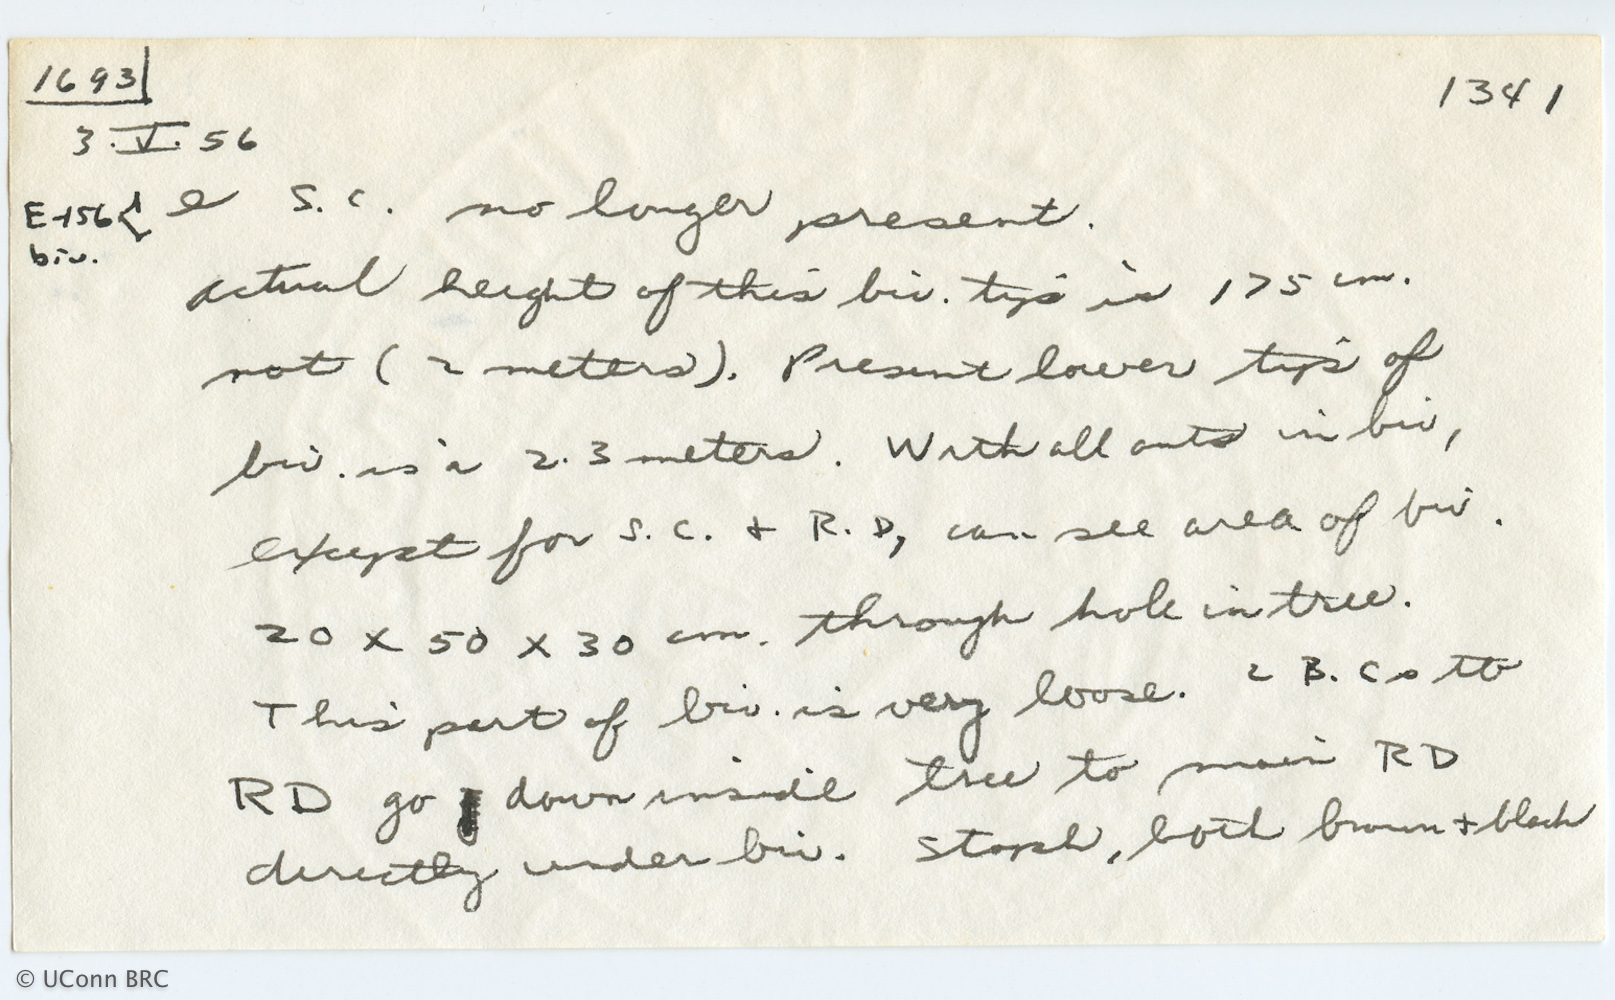 1693
1341
3.V.56
E-156 { e S.C. no longer present.
biv.
actual height of this biv. tips is 175 cm.
not (2 meters). Present lower tips of
biv. is 2.3 meters. With all ants in biv,
except for S.C. + R.D, can see area of biv.
20 x 50 x 30 cm. through hole in tree.
This part of biv. is very loose. 2 B.Cs to
RD go down inside tree to main RD
directly under biv. Staph, both brown + black
© UConn BRC